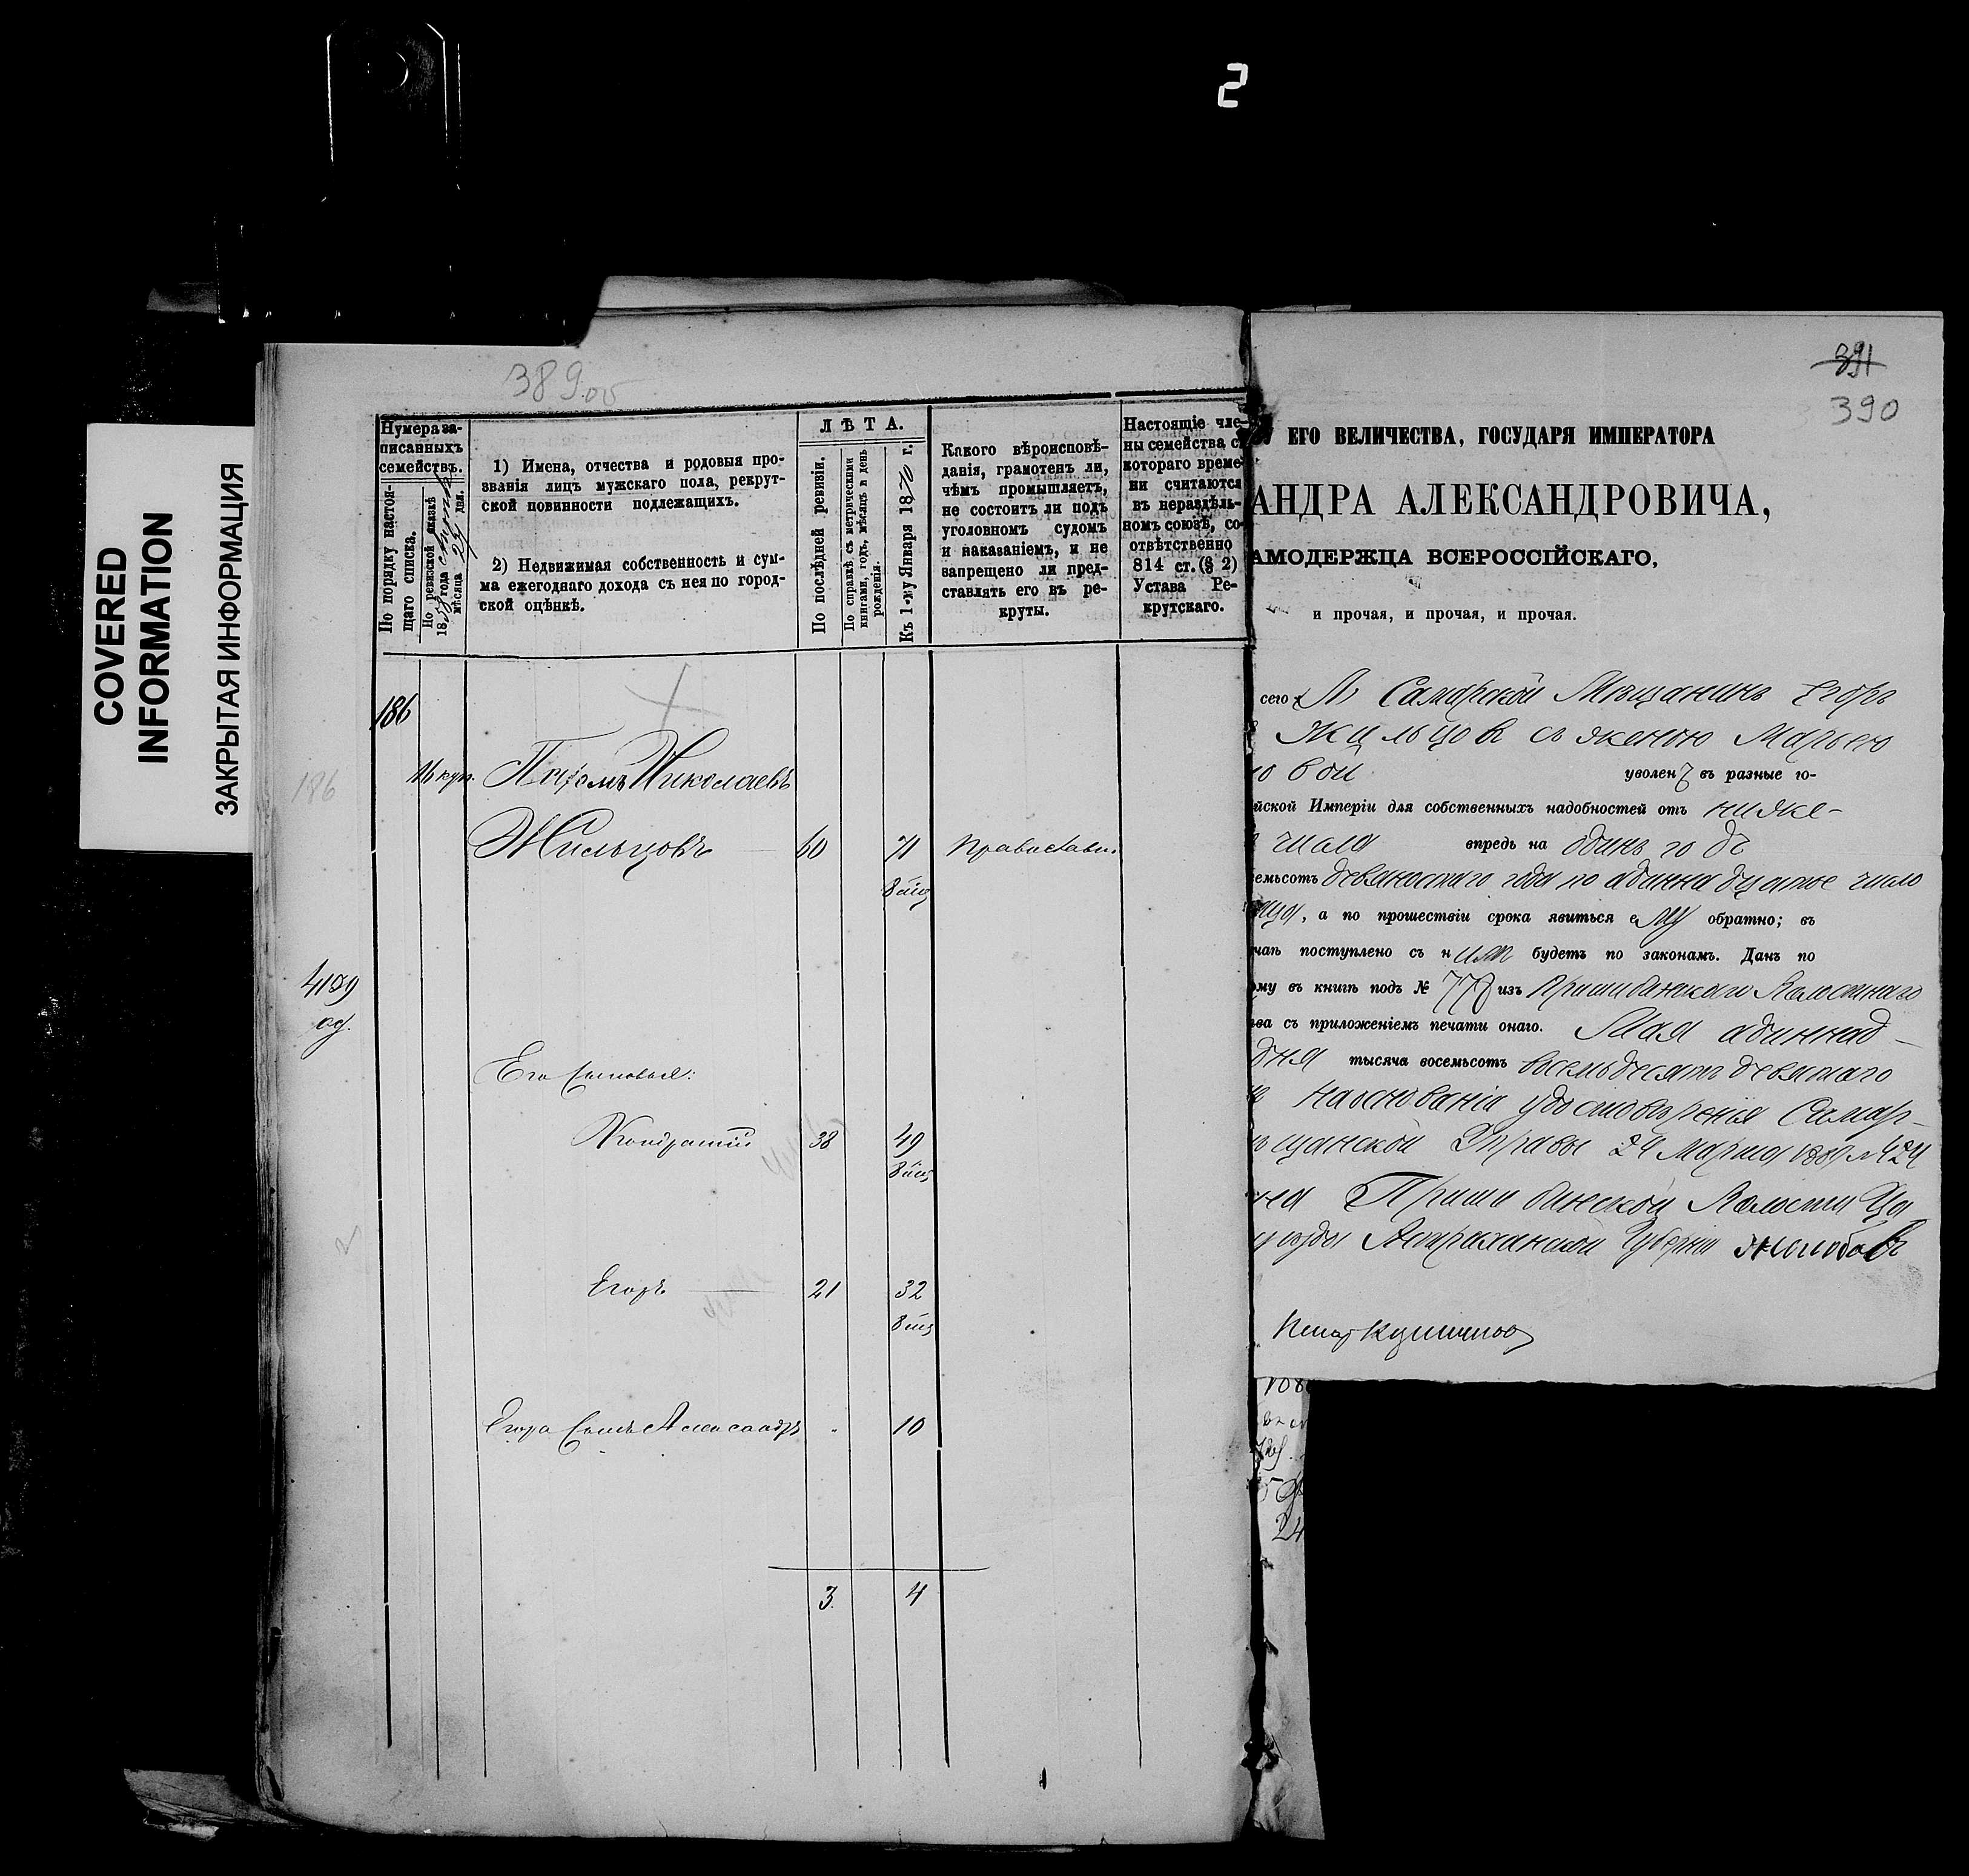 2
COVERED
INFORMATION
ЗАКРЫТАЯ ИНФОРМАЦИЯ
389 об
Нумера за-
писанныхъ
семействъ.
По порядку настоя-
щаго списка.
По ревизской сказкѣ
18 года
мѣсяца дня.
1) Имена, отчества и родовыя про-
званія лицъ мужскаго пола, рекрут-
ской повинности подлежащихъ.
2) Недвижимая собственность и сум-
ма ежегоднаго дохода съ нея по город-
ской оцѣнкѣ.
ЛѢТА.
По послѣдней ревизіи.
По справкѣ съ метрическими
книгами, годъ, мѣсяцъ и день
рожденія.
Къ 1-му Января 1870 г.
Какого вѣроисповѣ-
данія, грамотенъ ли,
чѣмъ промышляетъ,
не состоитъ ли подъ
уголовномъ судомъ
и наказаніемъ, и не
запрещено ли пред-
ставлять его въ ре-
круты.
Настоящіе чле-
ны семейства, с
котораго време-
ни считаются
въ нераздѣль-
номъ союзѣ, со-
отвѣтственно
814 ст. (§ 2)
Устава Ре-
крутскаго.
186
186
16 куп. Николаевъ
Жильцовъ 60 71 Православн.
4189
Его сыновья:
Кондратій 38 49
Егоръ 21 32
Егора сынъ Александръ 10
3 4
391
390
ЕГО ВЕЛИЧЕСТВА, ГОСУДАРЯ ИМПЕРАТОРА
АНДРА АЛЕКСАНДРОВИЧА,
АМОДЕРЖЦА ВСЕРОССІЙСКАГО,
и прочая, и прочая, и прочая.
сего Самарской Мѣщанинъ Егоръ
Жильцовъ съ женою Марьею
овой уволенъ въ разные го-
йской Имперіи для собственныхъ надобностей отъ ниже-
числа впредь на одинъ годъ
емьсотъ девяностаго года по адиннадцатое число
, а по прошествіи срока явиться ему обратно; въ
чаѣ поступлено съ нимъ будетъ по законамъ. Данъ по
ому въ книгѣ подъ № 778 изъ Пришибинскаго Волостнаго
ва съ приложеніемъ печати онаго. Мая адиннад-
дня тысяча восемьсотъ восемьдесятъ девятаго
на основаніи удостовѣренія Самар-
щанской Управы 24 Марта 1889 № 424
Пришибинской Волости Ца
уѣзда Астраханской Губерніи